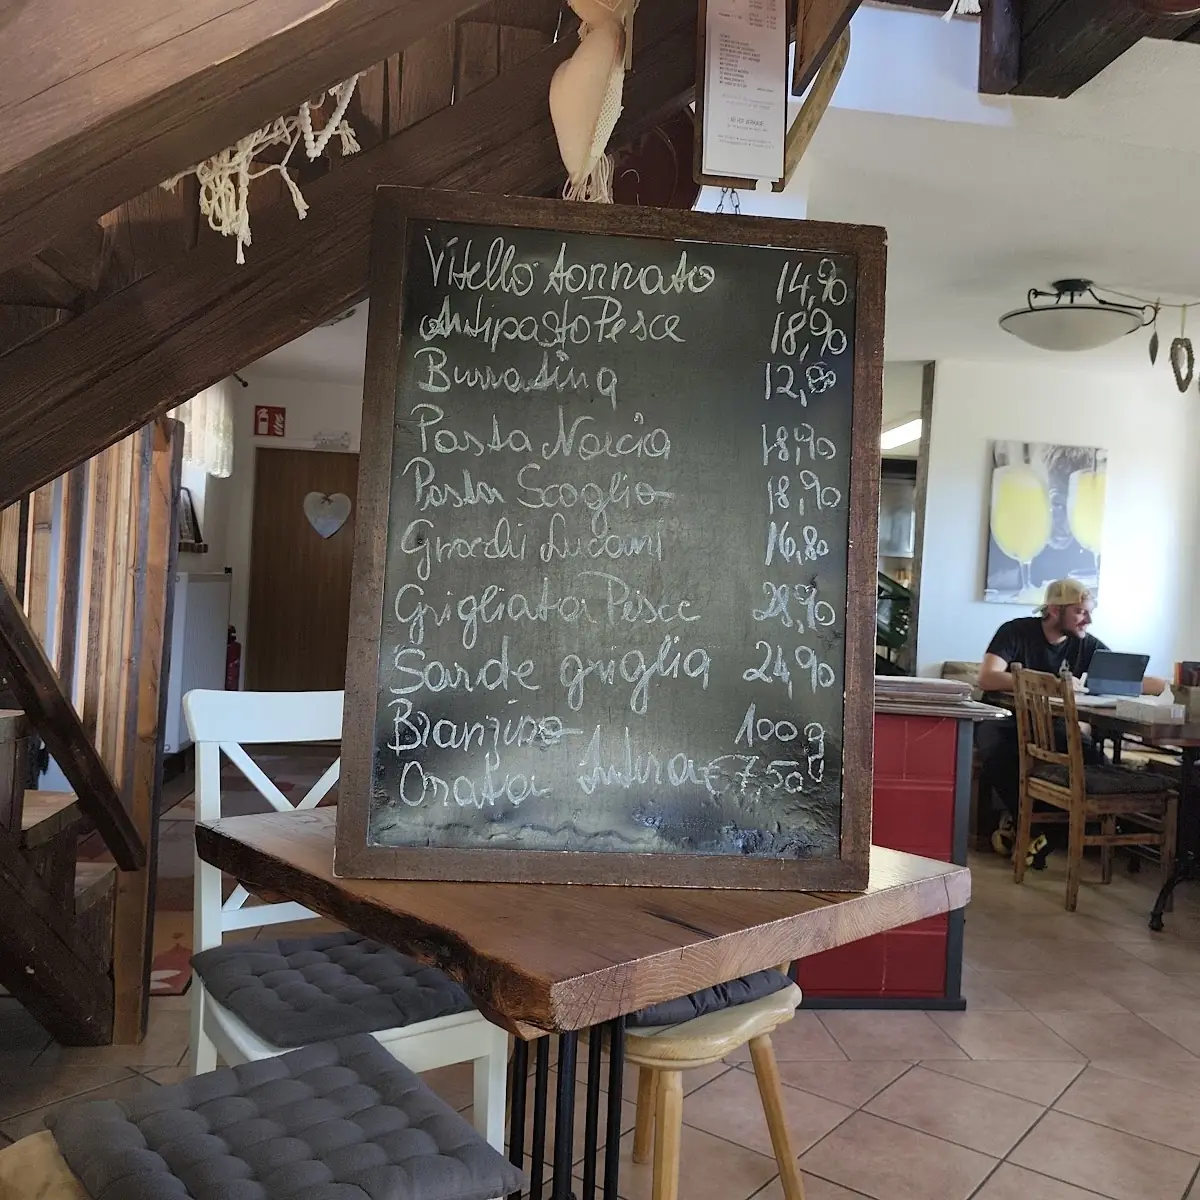 Vitello tonnato 14,90
Antipasto Pesce 18,90
Burratina 12,80
Pasta Norcia 18,90
Pasta Scoglio 18,90
Gnocchi Lucani 16,80
Grigliata Pesce 28,90
Sarde griglia 24,90
Branzino 100g
Orata intera € 7,50